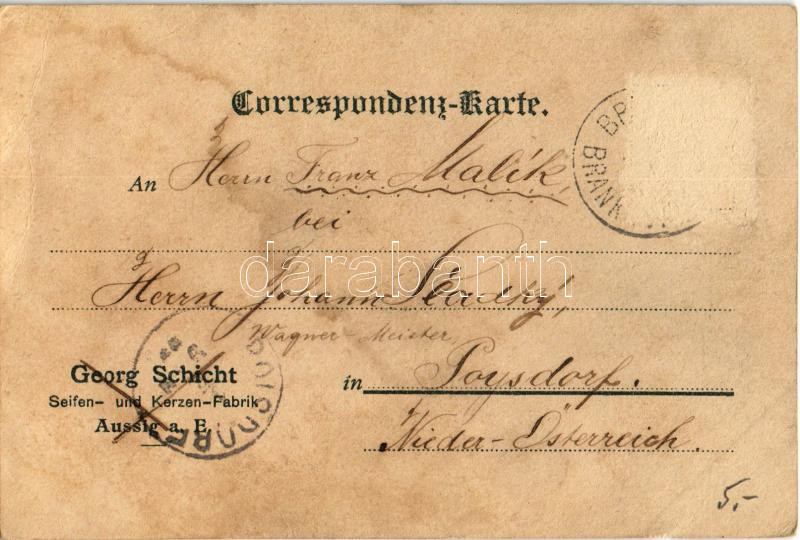 Correspondenz-Karte.
An Herrn Franz Malík,
bei
Herrn Johann Sladký,
Wagner-Meister,
in Poysdorf.
Nieder-Österreich.
Georg Schicht
Seifen- und Kerzen-Fabrik
Aussig a. E.
BRANK
POISDORF
darabanth
5.-